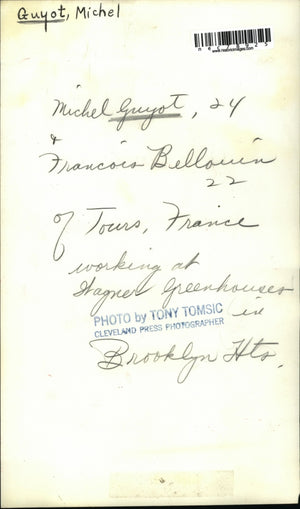 Guyot, Michel
www.neatimages.com
Michel Guyot, 24
&
Francois Bellouin
22
of Tours, France
working at
Wagner Greenhouses
PHOTO by TONY TOMSIC
CLEVELAND PRESS PHOTOGRAPHER
in
Brooklyn Hts.